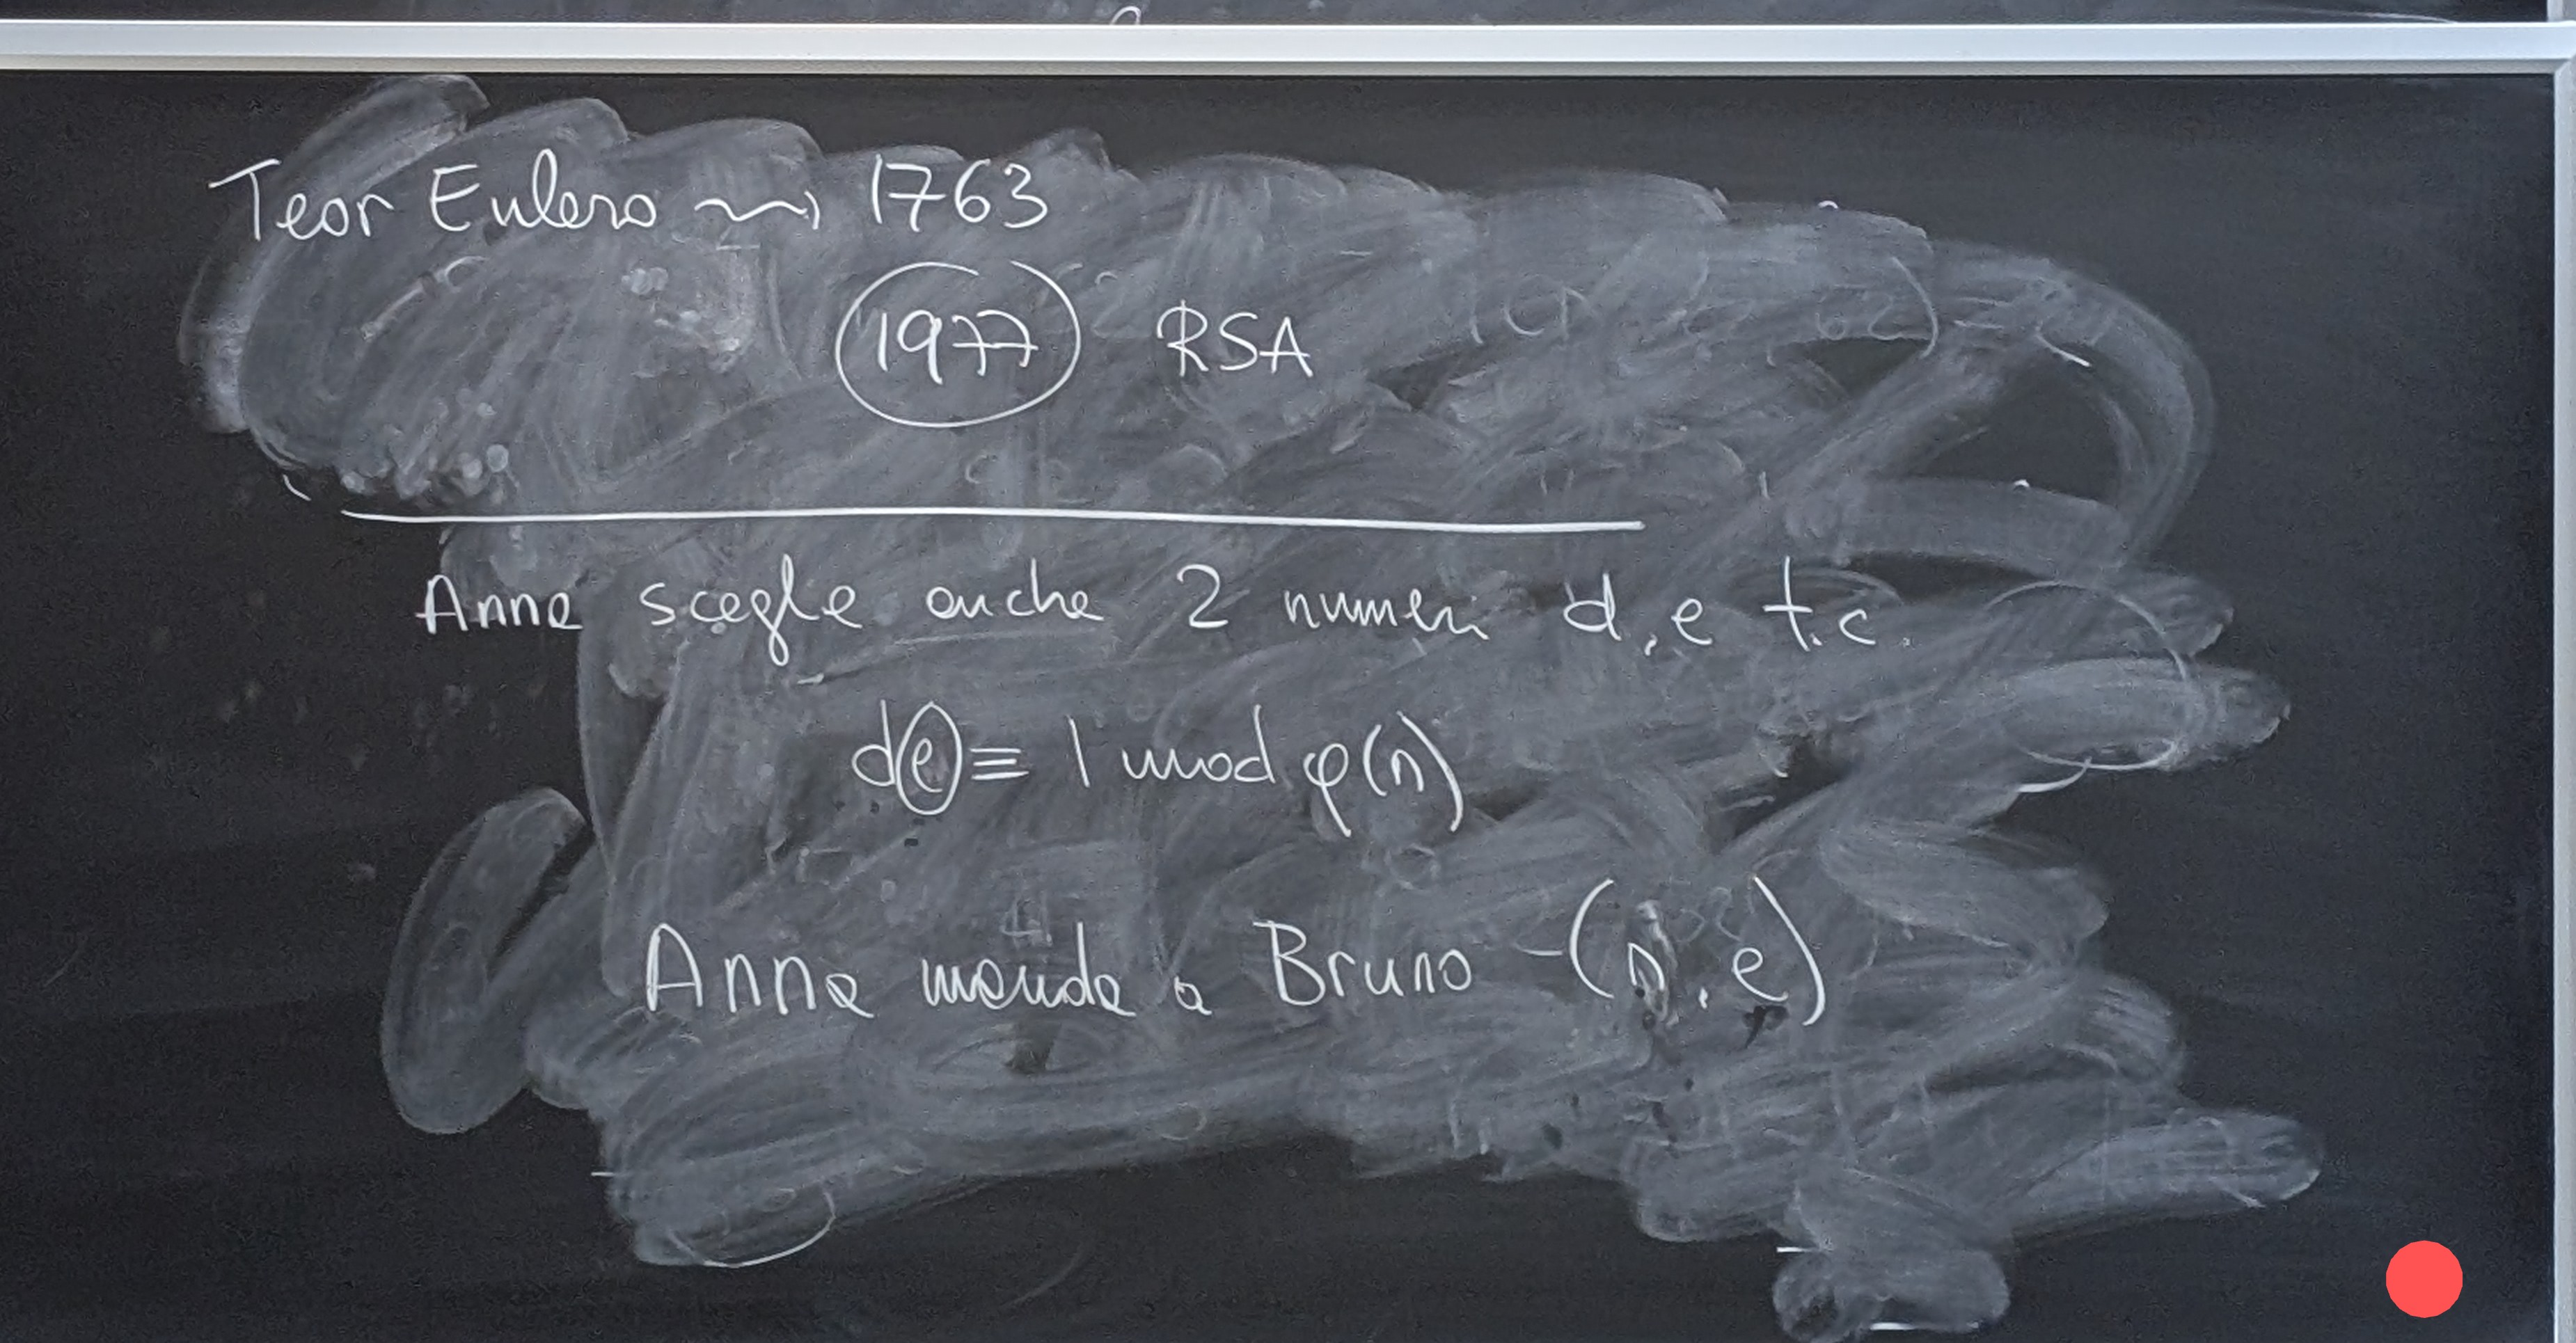 Teor Eulero ⇝ 1763
1977 RSA
Anna sceglie anche 2 numeri d, e t.c.
de ≡ 1 mod φ(n)
Anna manda a Bruno (n, e)